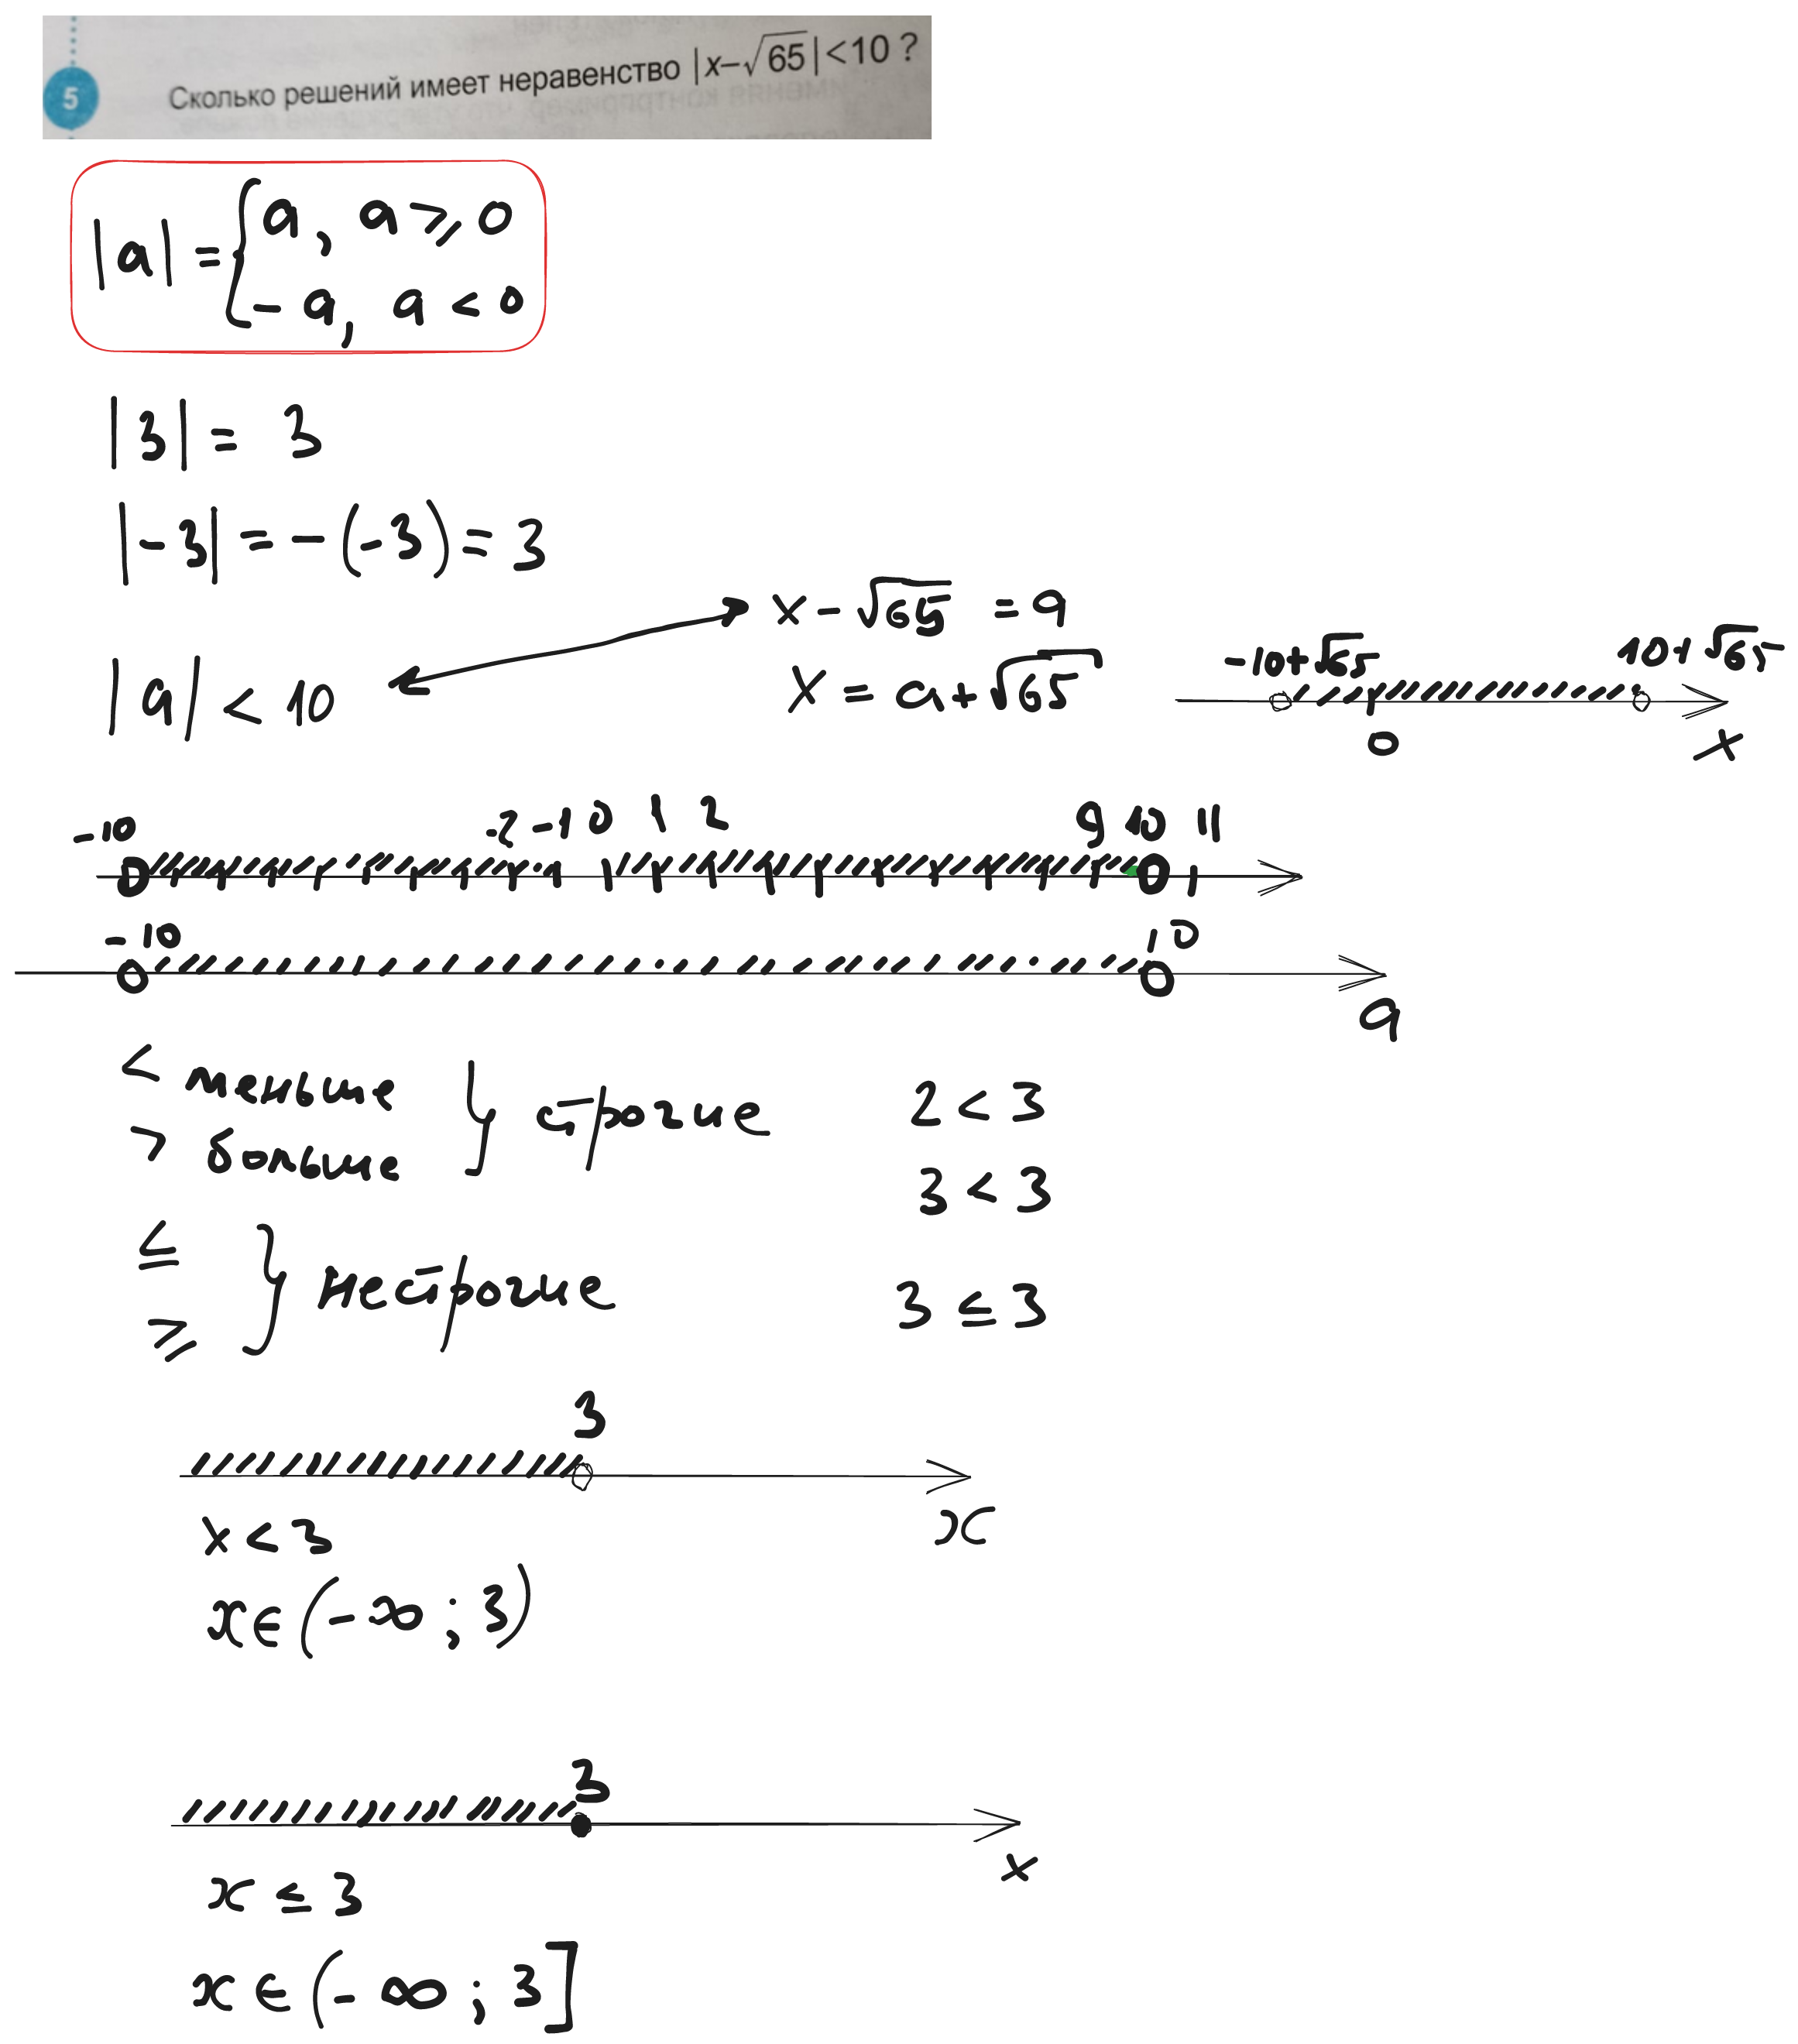 5 Сколько решений имеет неравенство |x–√65|<10 ?
|a| = { a, a ⩾ 0
- a, a < 0
|3| = 3
|-3| = -(-3) = 3
x - √65 = a
|a| < 10
x = a + √65
-10+√65 10+√65
0 x
-10 -2 -1 0 1 2 9 10 11
-10 10
a
< меньше } строгие 2 < 3
> больше 3 < 3
≤
⩾ } нестрогие 3 ≤ 3
3
x
x < 3
x ∈ (-∞ ; 3)
3
x
x ≤ 3
x ∈ (-∞ ; 3]